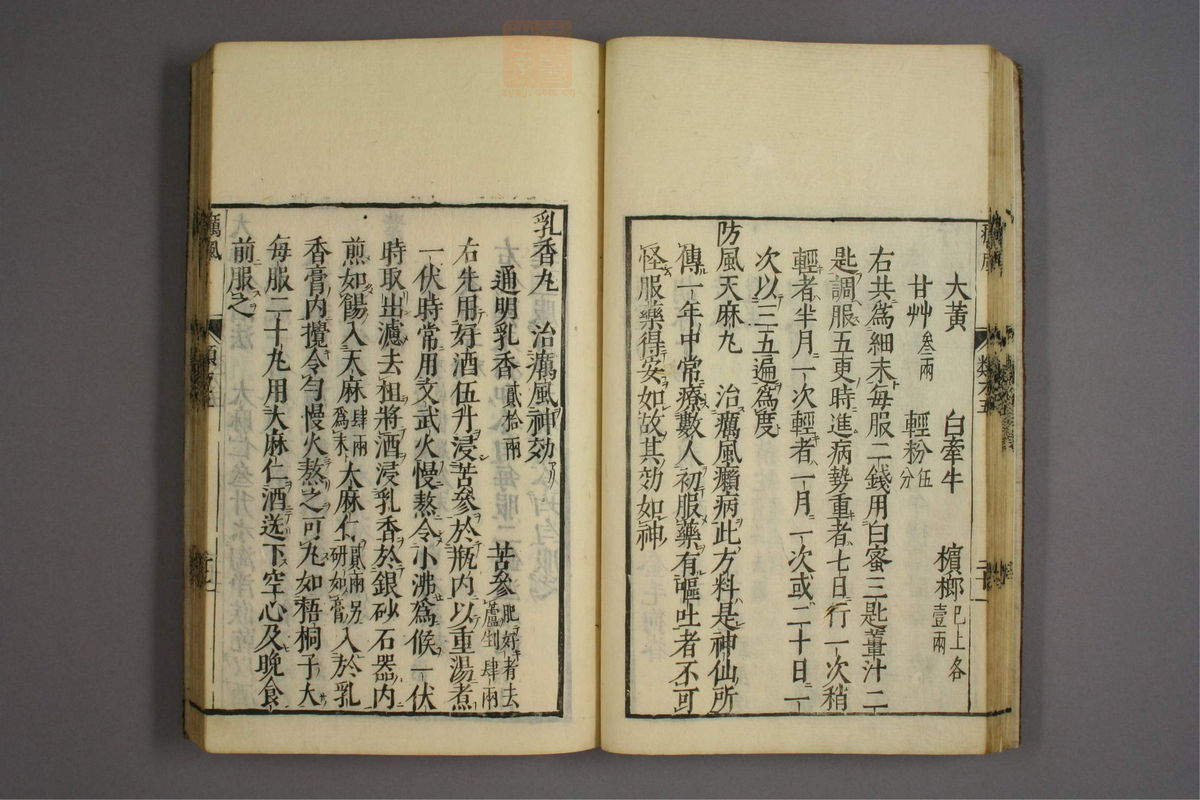 大黃　白牽牛　檳榔已上各壹兩
甘艸叁兩　輕粉伍分
右共爲細末每服二錢用白蜜三匙薑汁二
匙調服五更時進病勢重者七日行一次稍
輕者半月一次輕者一月一次或二十日一
次以三五遍爲度
防風天麻丸　治癘風癩病此方料是神仙所
傳一年中常療數人初服藥有嘔吐者不可
怪服藥得安如故其効如神
乳香丸　治癘風神効
通明乳香貳拾兩　苦參肥好者去蘆剉肆兩
右先用好酒伍升浸苦參於瓶内以重湯煮
一伏時常用文武火慢熬令小沸爲候一伏
時取出濾去柤將酒浸乳香於銀砂石器内
煎如餳入天麻肆兩爲末大麻仁貳兩另研如膏入於乳
香膏内攪令勻慢火熬之可丸如梧桐子大
每服二十丸用大麻仁酒送下空心及晚食
前服之
癘風